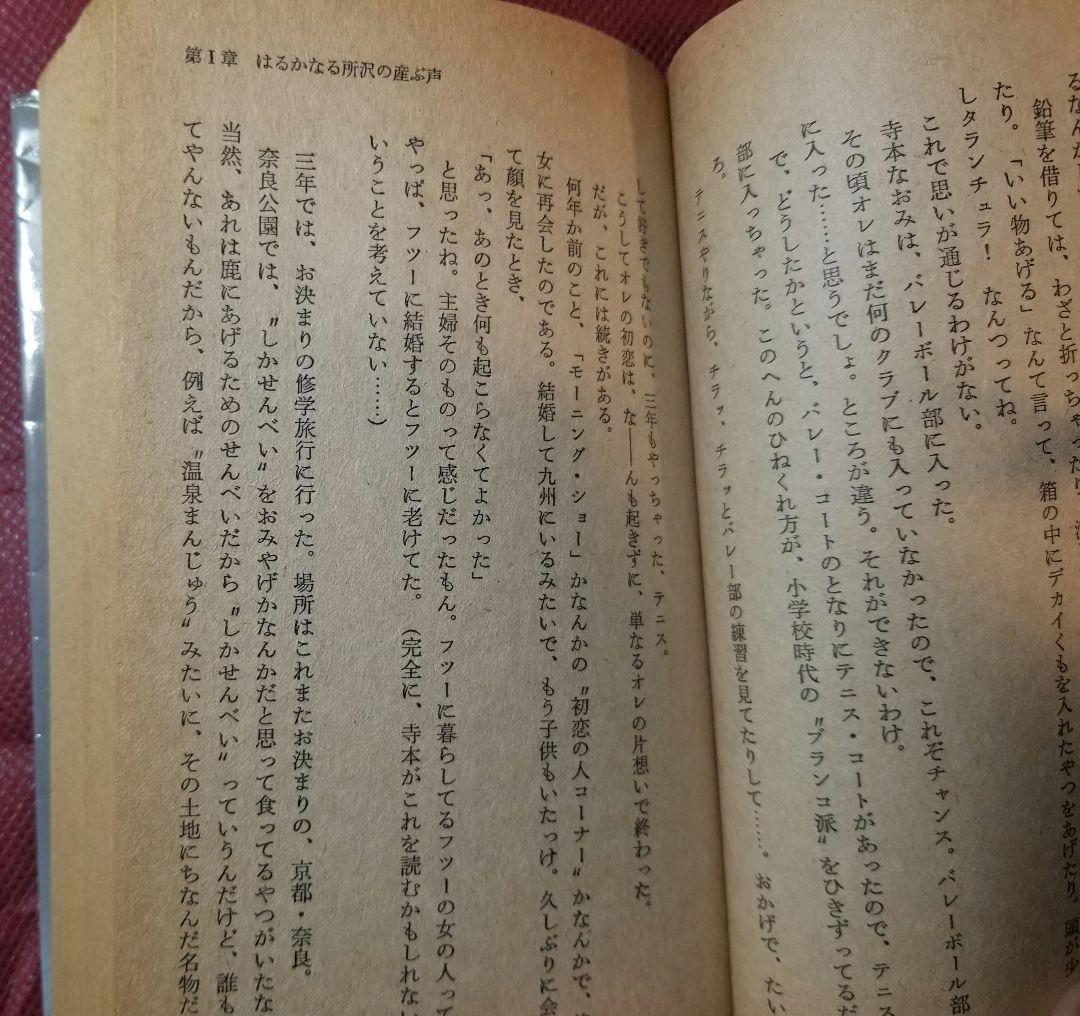 るなんな
鉛筆を借りては、わざと折っちゃったり
たり。「いい物あげる」なんて言って、箱の中にデカイくもを入れたやつをあげたり。頭が少
しタランチュラ！　なんつってね。
これで思いが通じるわけがない。
寺本なおみは、バレーボール部に入った。
その頃オレはまだ何のクラブにも入っていなかったので、これぞチャンス。バレーボール部
に入った……と思うでしょ。ところが違う。それができないわけ。
で、どうしたかというと、バレー・コートのとなりにテニス・コートがあったので、テニス
部に入っちゃった。このへんのひねくれ方が、小学校時代の〝ブランコ派〟をひきずってるだ
ろ。テニスやりながら、チラッ、チラッとバレー部の練習を見てたりして……。おかげで、たい
して好きでもないのに、三年もやっちゃった、テニス。
こうしてオレの初恋は、な――んも起きずに、単なるオレの片想いで終わった。
だが、これには続きがある。
何年か前のこと、「モーニング・ショー」かなんかの〝初恋の人コーナー〟かなんかで、
女に再会したのである。結婚して九州にいるみたいで、もう子供もいたっけ。久しぶりに会
て顔を見たとき、
「あっ、あのとき何も起こらなくてよかった」
と思ったね。主婦そのものって感じだったもん。フツーに暮らしてるフツーの女の人って
やっぱ、フツーに結婚するとフツーに老けてた。（完全に、寺本がこれを読むかもしれない
いうことを考えていない……）
三年では、お決まりの修学旅行に行った。場所はこれまたお決まりの、京都・奈良。
奈良公園では、〝しかせんべい〟をおみやげかなんかだと思って食ってるやつがいたな
当然、あれは鹿にあげるためのせんべいだから〝しかせんべい〟っていうんだけど、誰も
てやんないもんだから、例えば〝温泉まんじゅう〟みたいに、その土地にちなんだ名物だ
第Ⅰ章　はるかなる所沢の産ぶ声